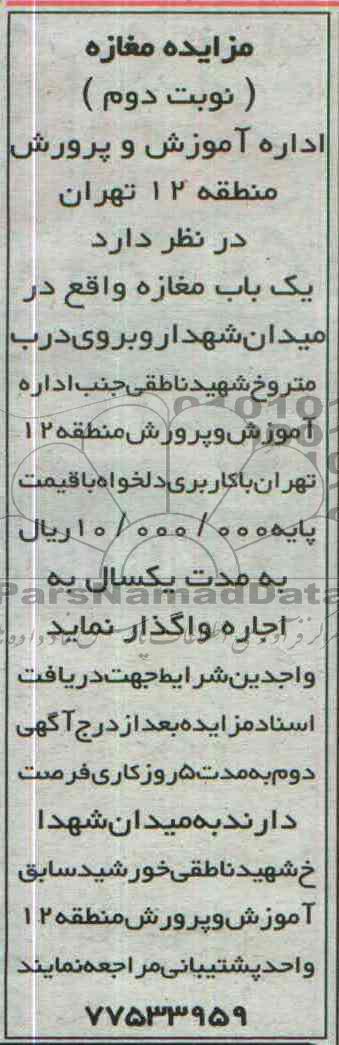 مزایده مغازه
( نوبت دوم )
اداره آموزش و پرورش
منطقه ۱۲ تهران
در نظر دارد
یک باب مغازه واقع در
میدان شهدا روبروی درب
مترو خ شهید ناطقی جنب اداره
آموزش و پرورش منطقه ۱۲
تهران با کاربری دلخواه با قیمت
پایه ۱۰/۰۰۰/۰۰۰ ریال
به مدت یکسال به
ParsNamadData
اجاره واگذار نماید
واجدین شرایط جهت دریافت
اسناد مزایده بعد از درج آگهی
دوم به مدت ۵ روز کاری فرصت
دارند به میدان شهدا
خ شهید ناطقی خورشید سابق
آموزش و پرورش منطقه ۱۲
واحد پشتیبانی مراجعه نمایند
۷۷۵۳۳۹۵۹